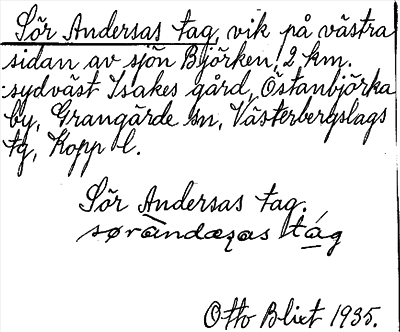 Sör Andersas tag, vik på västra
sidan av sjön Björken, 2 km.
sydväst Isakes gård, Östanbjörka
by, Grangärde sn, Västerbergslags
tg, Kopp l.
Sör Andersas tag.
Otto Blixt 1935.